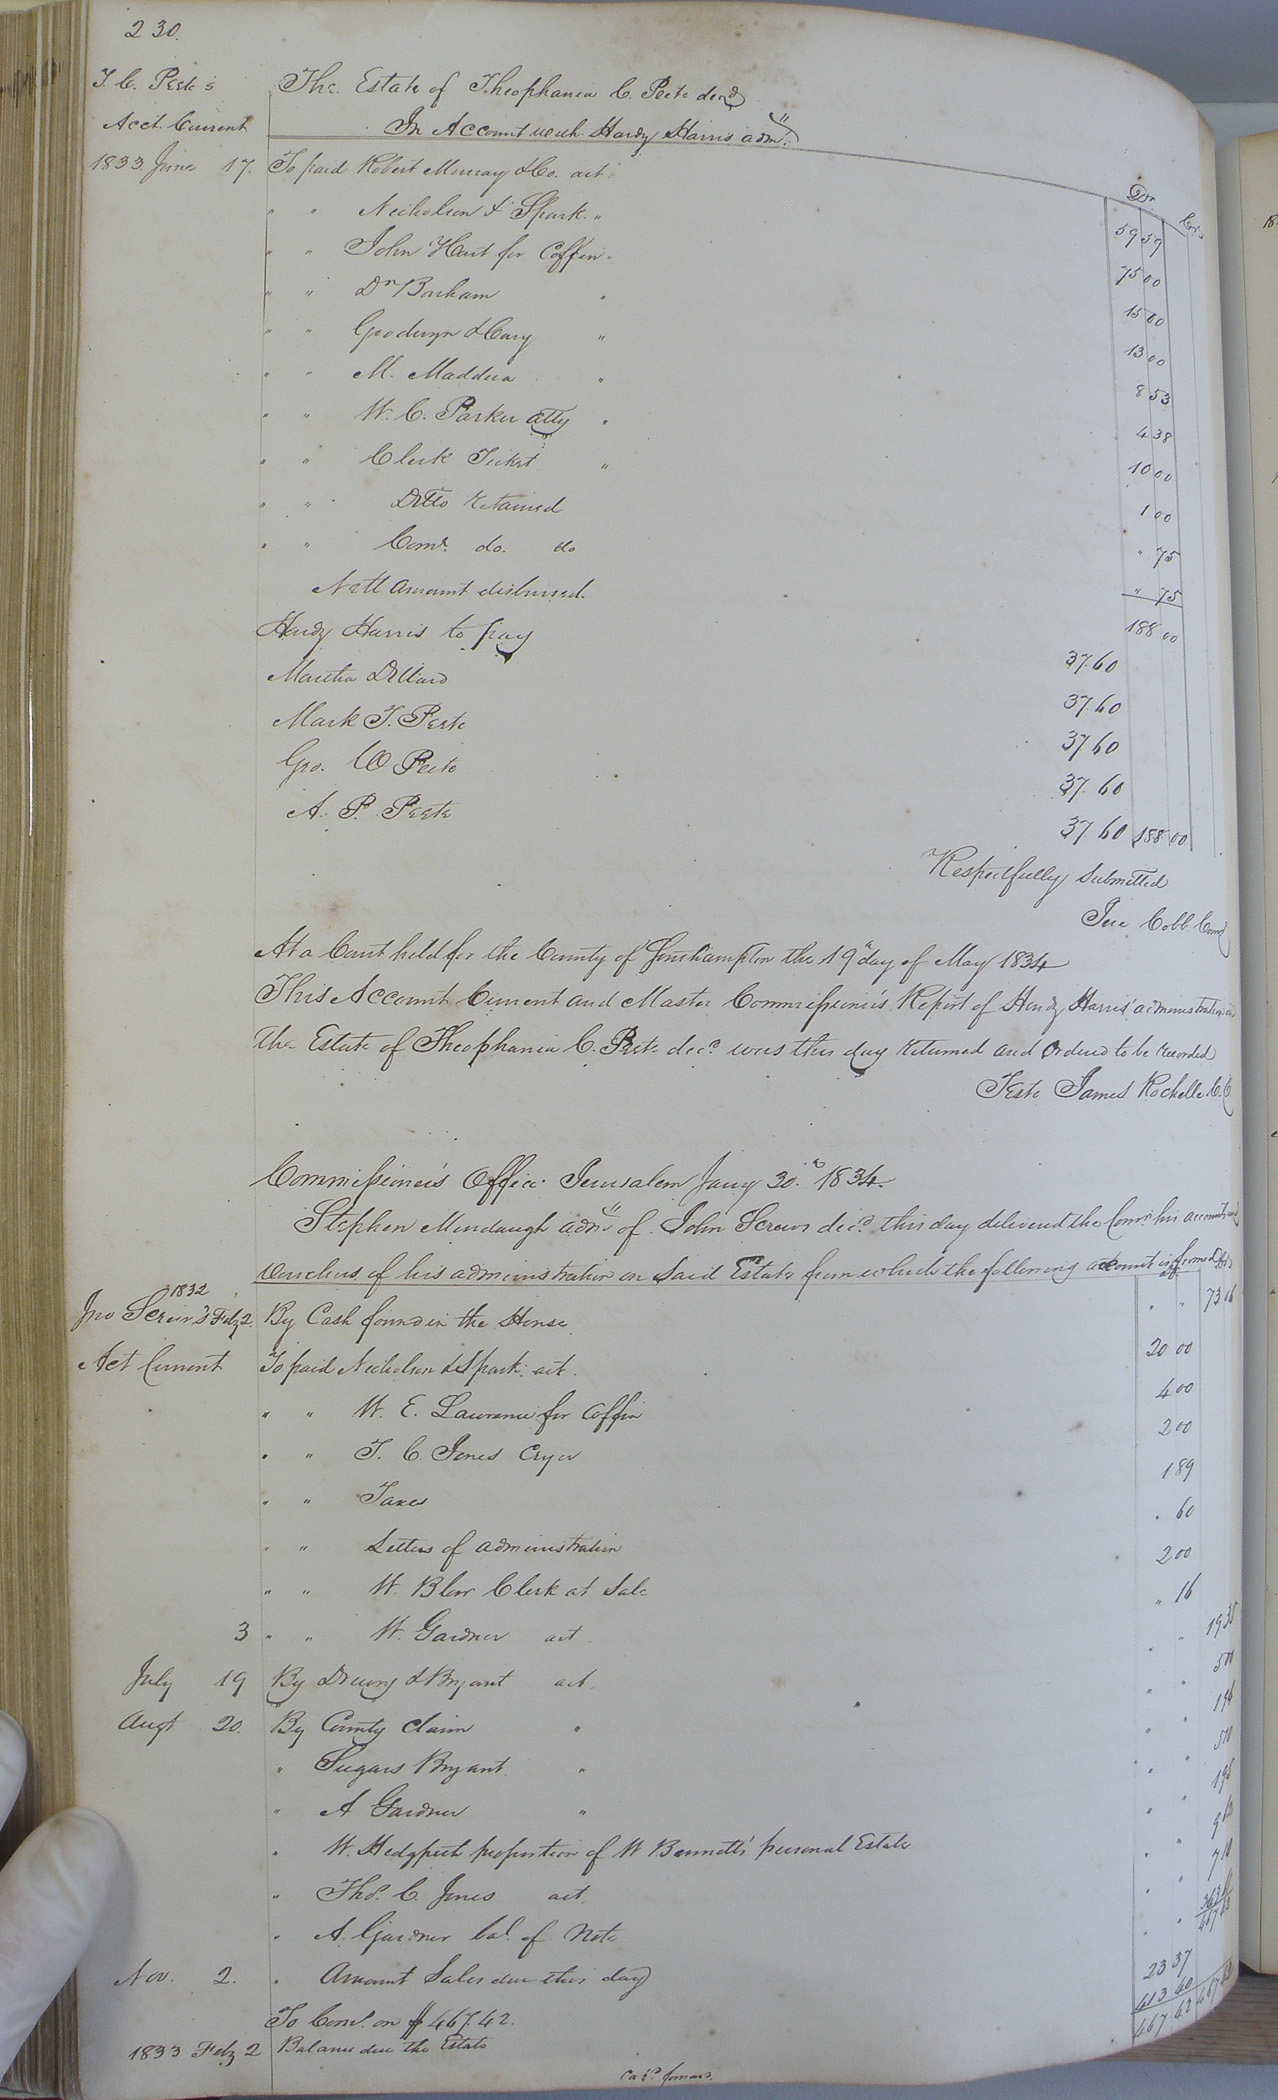 230.
T. C. Peete's The Estate of Theophania C. Peete decd
Acct. Current In Account with Hardy Harris admr.
Dr. Crs
1833. June 17. To paid Robert Murray & Co. act 59 59
" " Nicholson & Spark " 75 00
" " John Hart for Coffin " 15 00
" " Dr Barham " 13 00
" " Goodwyn & Cary " 8 53
" " M. Maddera " 4 38
" " W. C. Parker atty " 10 00
" " Clerk Ticket " 1 00
" " Ditto retained " 75
" " Comr. do. do " 75
Nett amount disbursed. 188 00
Hardy Harris to pay 37.60
Martha Dillard 37.60
Mark T. Peete 37 60
Geo. W Peete 37.60
A. P. Peete 37.60 188 00
Respectfully Submitted
Jere Cobb Comr
At a Court held for the County of Southampton the 19th day of May 1834
This Account Current and Master Commissioner's Report of Hardy Harris' administration on
the Estate of Theophania C. Peete decd. was this day returned and Ordered to be recorded
Teste James Rochelle C. C
Commissioner's Office Jerusalem Jany 30.th 1834.
Stephen Mundaugh admr of John Screws decd. this day delivered the Comr his accounts and
Vouchers of his administration on said Estate from which the following account is formed
Jno Screws 1832 Feby 2. By Cash found in the House " " 73 16
Act Current To paid Nicholson & Spark act. 20 00
" " W. E. Lawrence for Coffin 4 00
" " T. C. Jones Cryer 2 00
" " Taxes 1 89
" " Letters of administration " 60
" " W. Blow Clerk at Sale 2 00
3 " " W. Gardner act. " 16
July 19 By Drewry & Bryant act. " " 19 35
Augt 20. By County Claim " " "
" Sugars Bryant " " "
" A Gardner " " "
" W. Hedgpeth proportion of W Bennetts' personal Estate
" Thos. C. Jones act.
" A. Gardner bal. of Note
Nov. 2. " Amount Sales due this day
To Comr. on $467.42. 23 37
1833 Feby 2 Balance due the Estate 413 40
467 42 467 42
Card. forward.